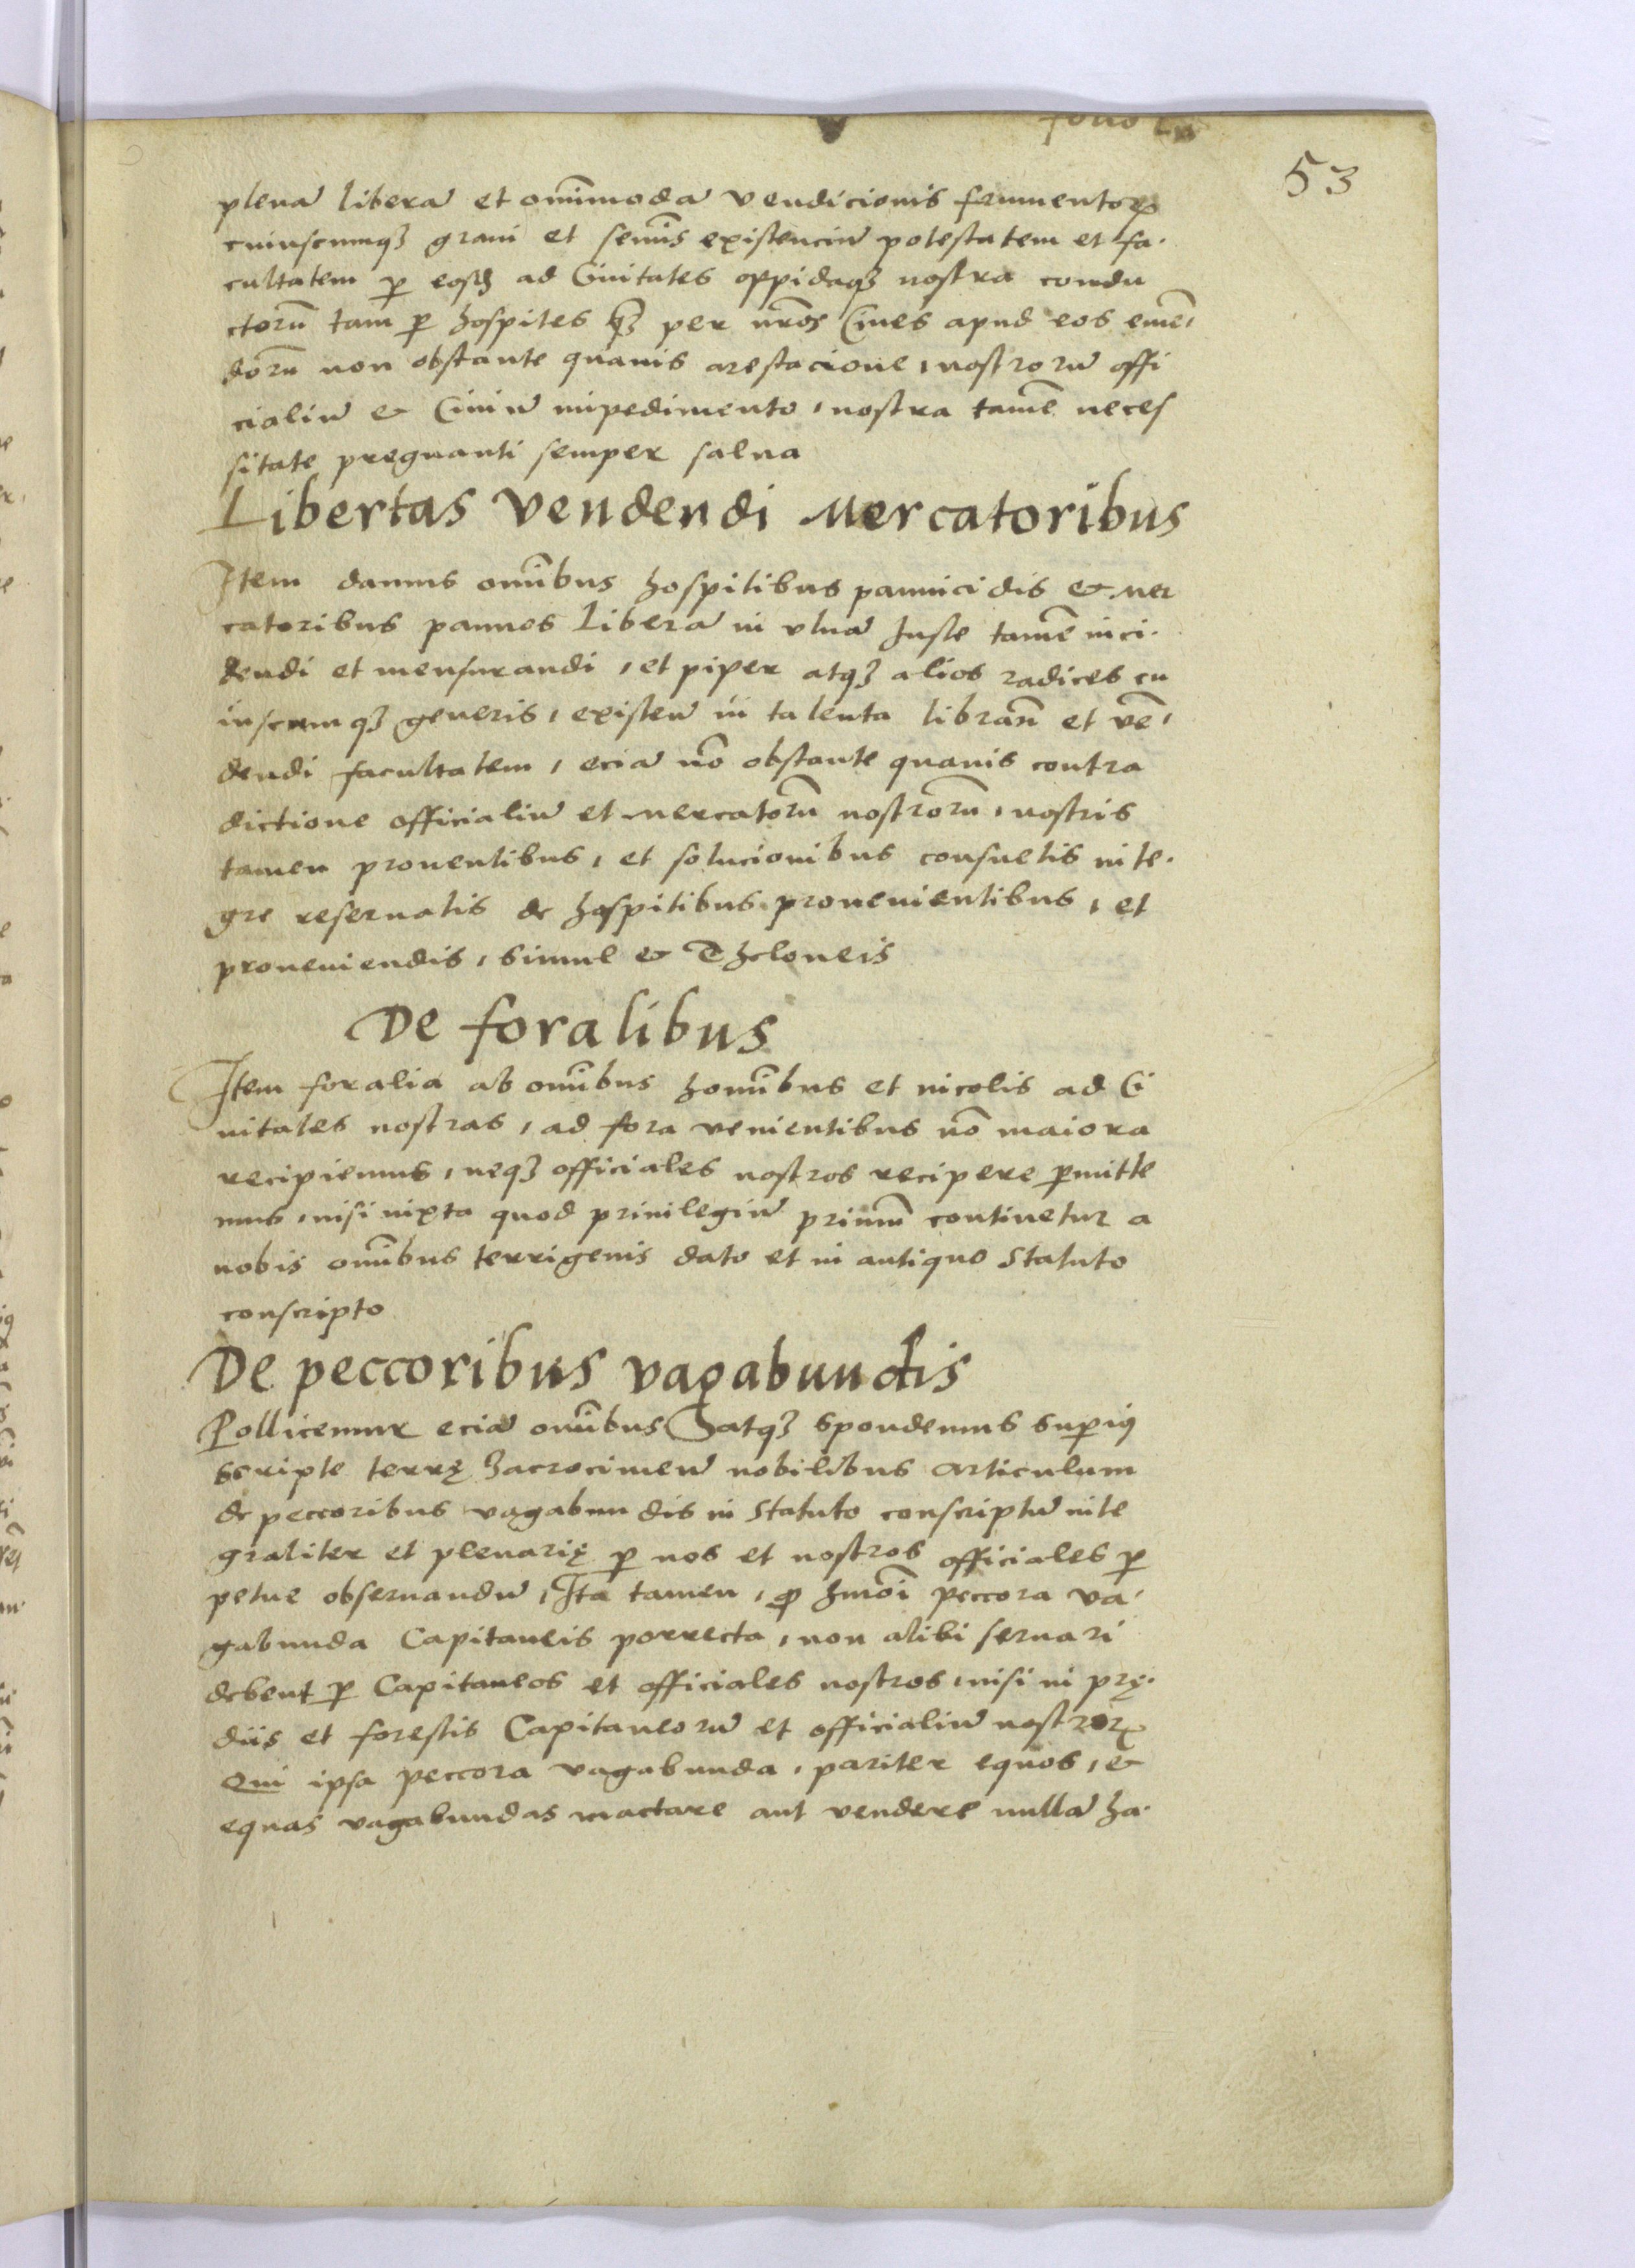 53
plenā liberā et oīmmodā vendicionis frumentoꝝ
cuiuscumqꝫ grani et semīs existenciū potestatem et fa-
cultatem ꝑ eosdꝫ ad Ciuitates oppidaqꝫ nostra condu
ctorū tam ꝑ hospites qꝫ per nr̄os Ciues apud eos emē-
dorū non obstante quauis arestacione, nostrorū offi
cialiū & Ciuiū impedimento, nostra tamē neces
sitate pregnanti semper salua
Libertas vendendi Mercatoribus
Item damus om̄ibus hospitibus pannicidis & Mer
catoribus pannos Liberā in vlnā Iuste tamē inci-
dendi et mensurandi, et piper atqꝫ alios radices cu
iuscumqꝫ generis, existeñ in talenta librañ et vē-
dendi facultatem, eciā nō obstante quauis contra
dictione officialiū et Mercatorū nostrorū, nostris
tamen prouentibus, et solucionibus consuetis inte-
gre reseruatis de hospitibus prouenientibus, et
proueniendis, simul & Theloneis
De foralibus
Item foralia ab om̄ibus hom̄ibus et incolis ad Ci
uitates nostras, ad fora venientibus nō maiora
recipiemus, neqꝫ officiales nostros recipere ꝑmitte
mus, nisi iuxta quod priuilegiū primū continetur a
nobis om̄ibus terrigenis dato et in antiquo Statuto
conscripto
De peccoribus vagabundis
Pollicemur eciā om̄ibus atqꝫ spondemus suꝑiꝰ
scripte terrę Zacrocimeñ nobilibus Articulum
de peccoribus vagabundis in Statuto conscriptū inte
graliter et plenarię ꝑ nos et nostros officiales ꝑ
petue obseruandū, Ita tamen, ꝙ hmōi peccora va-
gabunda Capitaneis porrecta, non alibi seruari
debent ꝑ Capitaneos et officiales nostros, nisi in prę-
diis et forestis Capitaneorū et officialiū nostroꝝ
Qui ipsa peccora vagabunda, pariter equos, &
equas vagabundas mactare aut vendere nullā ha-